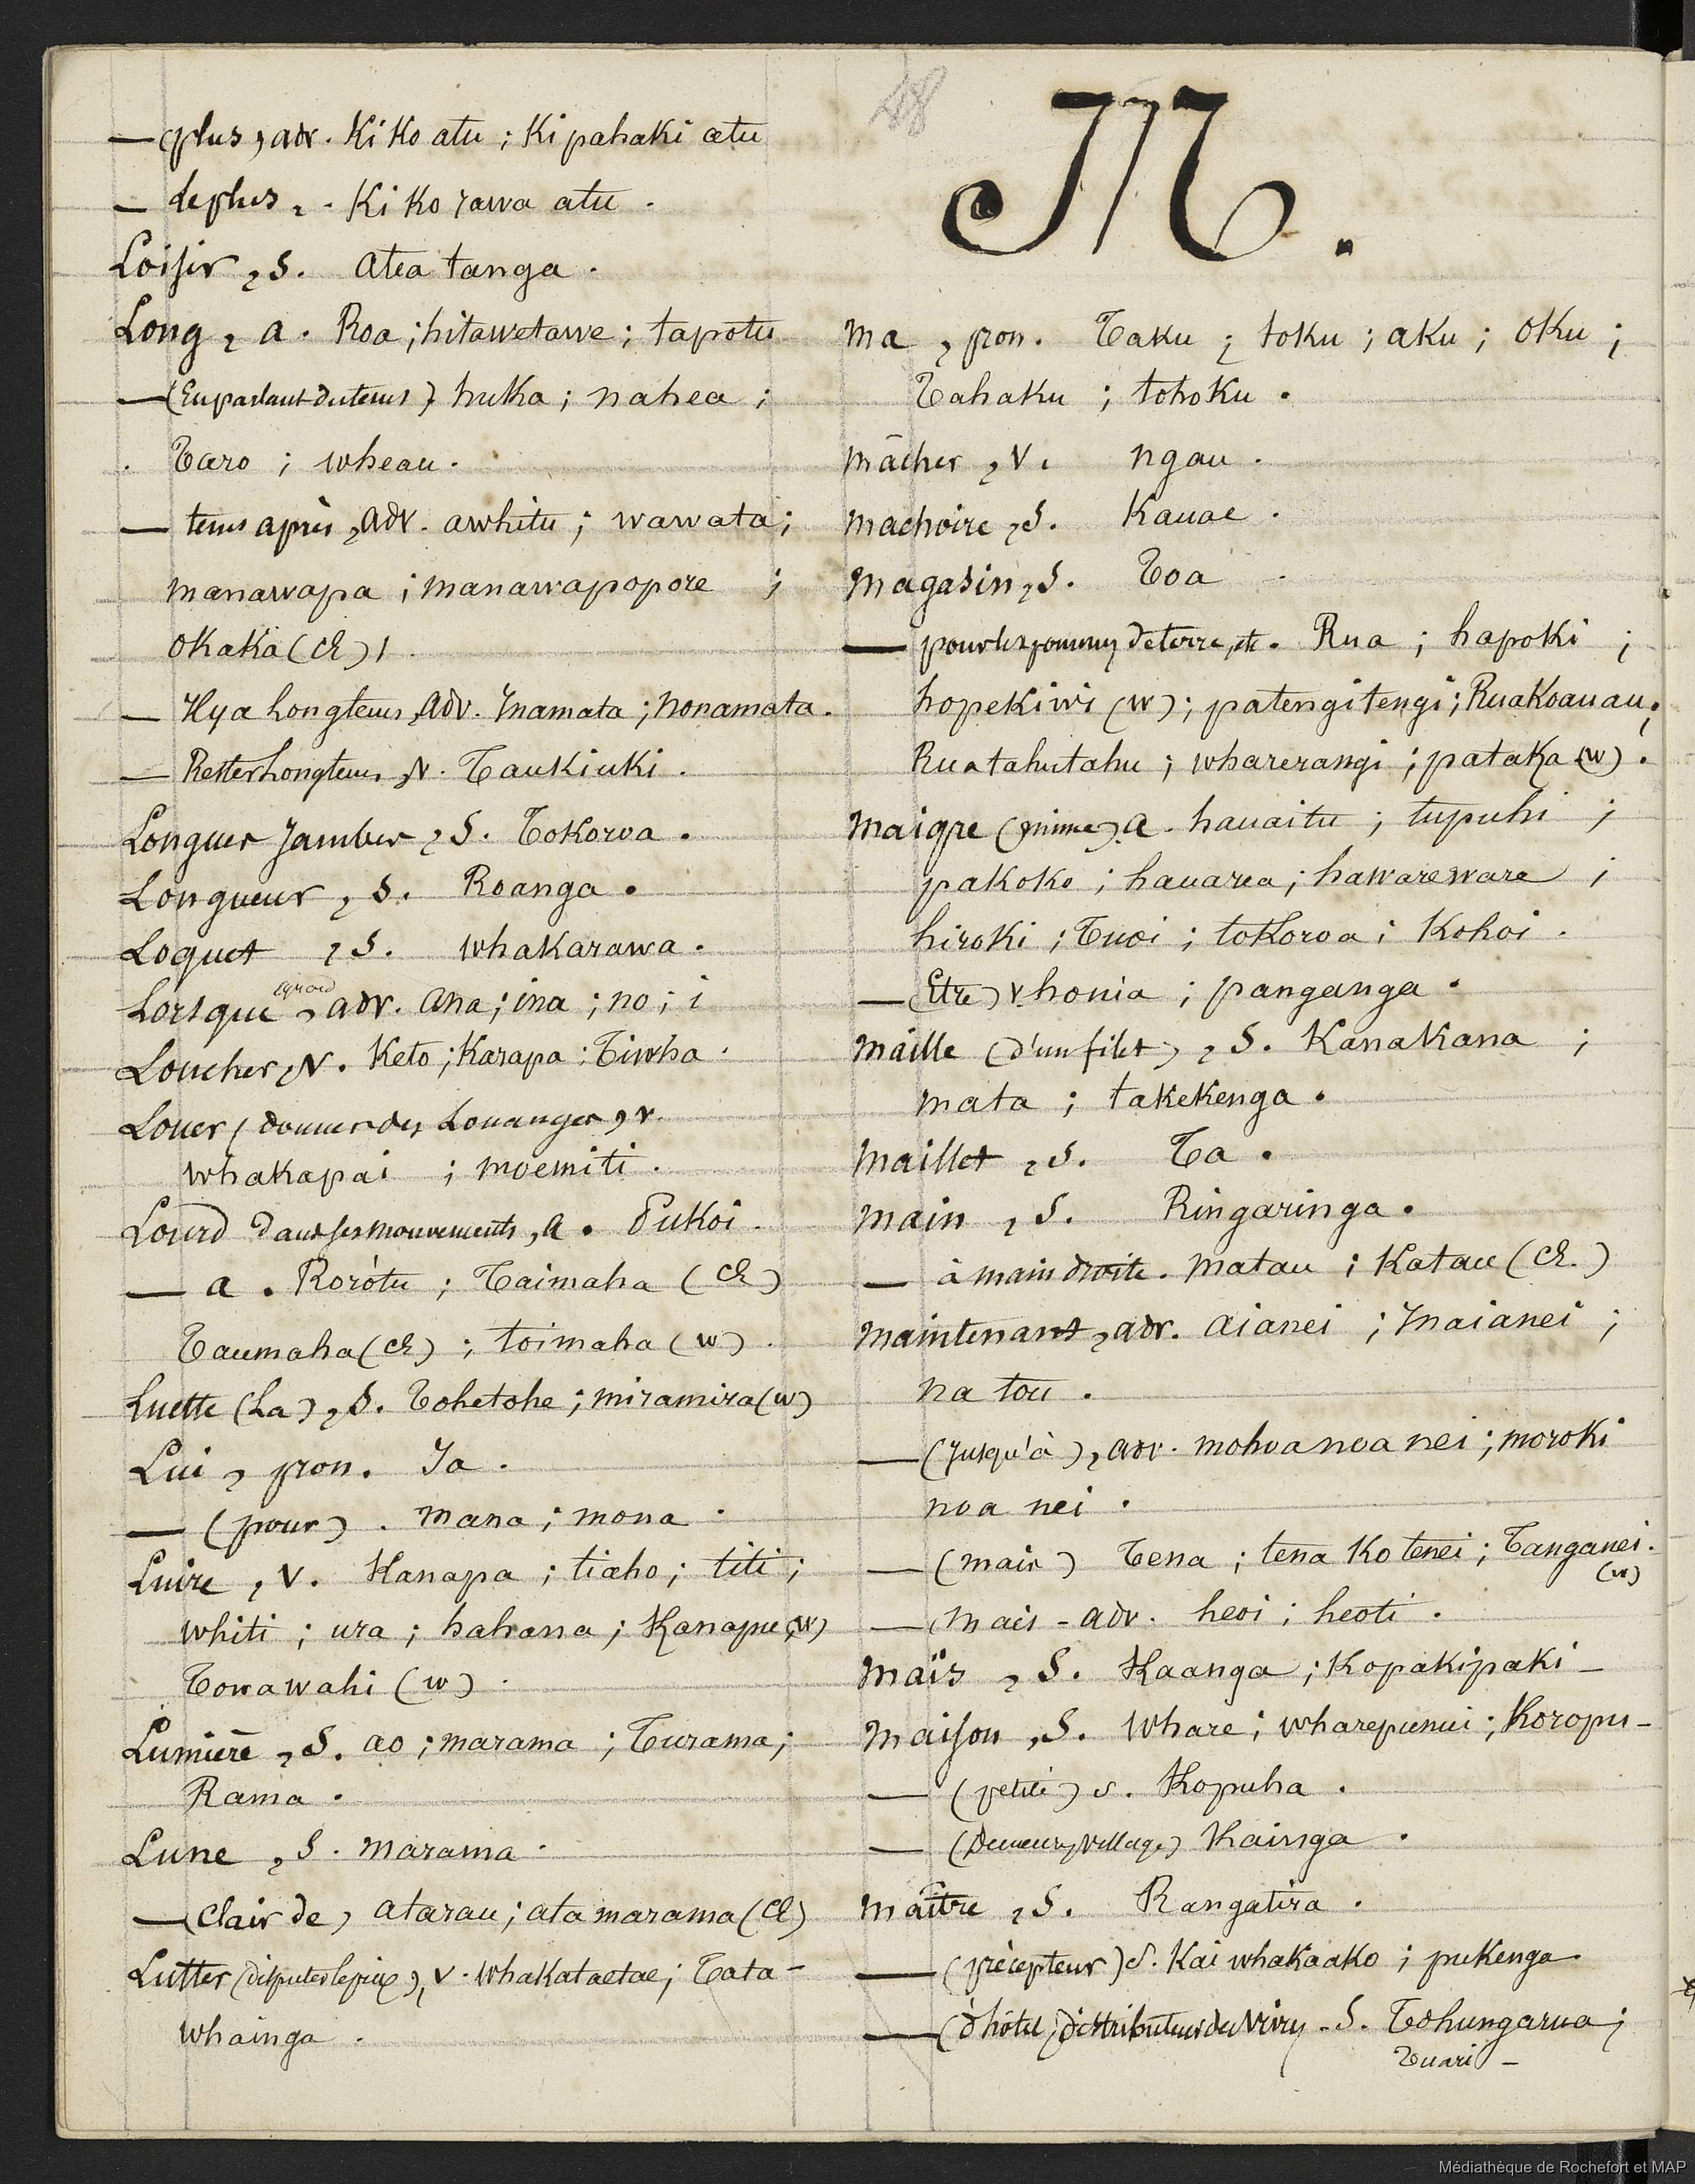 — (plus, adv. Ki Ko atu ; Ki pahaki atu
— Le plus, . Ki Ko rawa atu .
Loisir, s. atea tanga .
Long, a. Roa ; hitawetawe ; tapotu
— (En parlant du tems) huka ; nahea ;
Taro ; wheau .
— tems après, adv. awhitu ; wawata ;
manawapa ; manawapopore ;
Okaka (Ch) .
— Il y a Longtems, adv. Inamata ; nonamata .
— Rester Longtems, v. Taukiuki .
Longues Jambes, s. Tokoroa .
Longueur, s. Roanga .
Loquet, s. whakarawa .
Lorsque quand, adv. ana ; ina ; no ; i
Loucher, v. Keto ; Karapa ; Tiwha .
Louer (donner des Louanges, v.
whakapai ; moemiti .
Lourd dans ses mouvements, a. Pukoi .
— a. Roròtu ; Taimaha (Ch)
Taumaha (Ch) ; toimaha (w) .
Luette (La), s. Tohetohe ; miramira (w)
Lui, pron. Ia .
— (pour) . mana ; mona .
Luire, v. Kanapa ; tiaho ; titi ;
whiti ; ura ; hahana ; Kanapu (w)
Towawahi (w) .
Lumière, s. ao ; marama ; Turama ;
Rama .
Lune, s. marama .
— (Clair de, atarau ; ata marama (Ch)
Lutter (disputer le prix), v. whakataetae ; Tata-
whainga .
48
M.
Ma, pron. Taku ; toku ; aku ; oku ;
Tahaku ; tohoku .
mâcher, v. ngau .
machoire, s. Kauae .
magasin, s. Toa .
— pour les pommes de terre, etc. Rua ; hapoki ;
hopekiwi (w) ; patengitengi ; Ruakoauau ;
Ruatahutahu ; wharerangi ; pataka (w) .
maigre (mince), a. hauaitu ; tupuhi ;
pakoko ; hauarea ; hawareware ;
hiroki ; Tuoi ; tokoroa ; Kohoi .
— (Etre) v honia ; panganga .
maille (d'un filet), s. Kanakana ;
mata ; takekenga .
maillet, s. Ta .
main, s. Ringaringa .
— à main droite. matau ; Katau (Ch.)
maintenant, adv. aianei ; Inaianei ;
na tou .
— (Jusqu'à), adv. mohoanoa nei ; moroki
noa nei .
— (mais) Tena ; tena Ko tenei ; Tanganei .
(w)
— (mais - adv. heoi ; heoti .
maïs, s. Kaanga ; Kopakipaki -
maison, s. whare ; wharepunui ; Koropu -
— (petite) s. Kopuha .
— (Demeure, village) Kainga .
maître, s. Rangatira .
— (précepteur) s. Kai whakaako ; pukenga
— (d'hôtel, distributeur des vivres . s. Tohungarua ;
Tuari -
Médiathèque de Rochefort et MAP